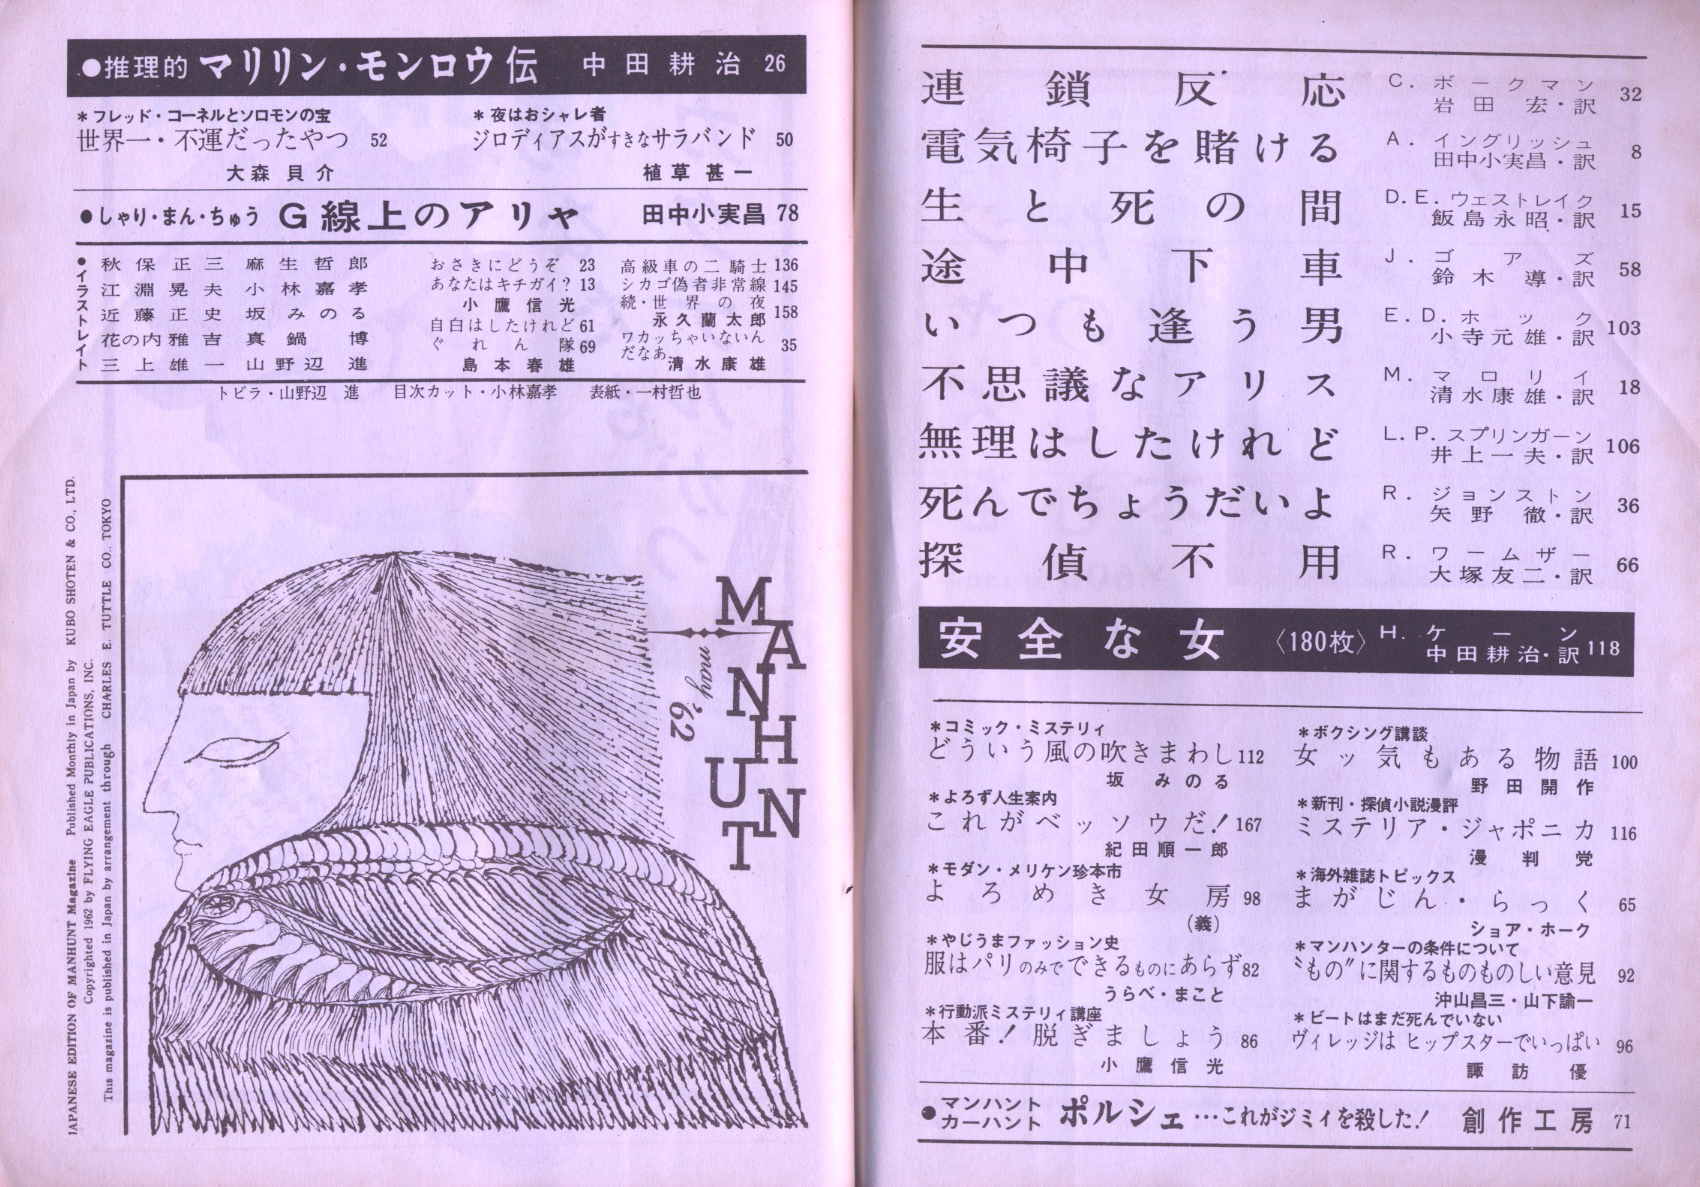 連鎖反応 C.ボークマン 岩田宏・訳 32
電気椅子を賭ける A.イングリッシュ 田中小実昌・訳 8
生と死の間 D.E.ウェストレイク 飯島永昭・訳 15
途中下車 J.ゴアズ 鈴木導・訳 58
いつも逢う男 E.D.ホック 小寺元雄・訳 103
不思議なアリス M.マロリイ 清水康雄・訳 18
無理はしたけれど L.P.スプリンガーン 井上一夫・訳 106
死んでちょうだいよ R.ジョンストン 矢野徹・訳 36
探偵不用 R.ワームザー 大塚友二・訳 66
安全な女 〈180枚〉 H.ケーン 中田耕治・訳 118
*コミック・ミステリィ
どういう風の吹きまわし 112
坂みのる
*よろず人生案内
これがベッソウだ! 167
紀田順一郎
*モダン・メリケン珍本市
よろめき女房 98
(義)
*やじうまファッション史
服はパリのみでできるものにあらず 82
うらべ・まこと
*行動派ミステリィ講座
本番!脱ぎましょう 86
小鷹信光
*ボクシング講談
女ッ気もある物語 100
野田開作
*新刊・探偵小説漫評
ミステリア・ジャポニカ 116
漫判党
*海外雑誌トピックス
まがじん・らっく 65
ショア・ホーク
*マンハンターの条件について
〝もの〟に関するものものしい意見 92
沖山昌三・山下諭一
*ビートはまだ死んでいない
ヴィレッジは ヒップスターでいっぱい 96
諏訪優
●マンハント カーハント ポルシェ…これがジミィを殺した! 創作工房 71
●推理的 マリリン・モンロウ伝 中田耕治 26
*フレッド・コーネルとソロモンの宝
世界一・不運だったやつ 52
大森貝介
*夜はおシャレ者
ジロディアスがすきなサラバンド 50
植草甚一
●しゃり・まん・ちゅう G線上のアリャ 田中小実昌 78
●イラストレイト
秋保正三 麻生哲郎
江淵晃夫 小林嘉孝
近藤正史 坂みのる
花の内雅吉 真鍋博
三上雄一 山野辺進
おさきにどうぞ 23
あなたはキチガイ? 13
小鷹信光
自白はしたけれど 61
ぐれん隊 69
島本春雄
高級車の二騎士 136
シカゴ偽者非常線 145
続・世界の夜 158
永久蘭太郎
ワカッちゃいないん
だなあ 35
清水康雄
トビラ・山野辺 進 目次カット・小林嘉孝 表紙・一村哲也
MANHUNT
may '62
JAPANESE EDITION OF MANHUNT Magazine Published Monthly in Japan by KUBO SHOTEN & CO., LTD.
Copyrighted 1962 by FLYING EAGLE PUBLICATIONS, INC.
This magazine is published in Japan by arrangement through CHARLES E. TUTTLE CO. TOKYO